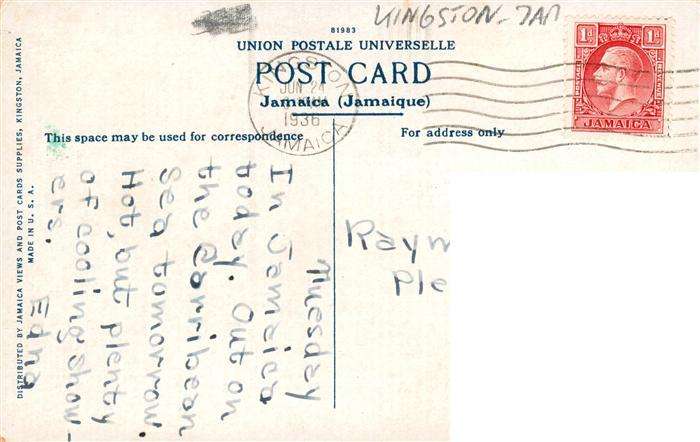 KINGSTON-JAM
B1983
UNION POSTALE UNIVERSELLE
POST CARD
Jamaica (Jamaique)
This space may be used for correspondence
For address only
KINGSTON
JUN 24
1936
JAMAICA
1d 1d
JAMAICA
Tuesday
In Jamaica
today. Out on
the Carribean
Sea tomorrow.
Hot, but plenty
of cooling show-
ers.
Edna
Raym
Ple
DISTRIBUTED BY JAMAICA VIEWS AND POST CARDS SUPPLIES, KINGSTON, JAMAICA
MADE IN U. S. A.